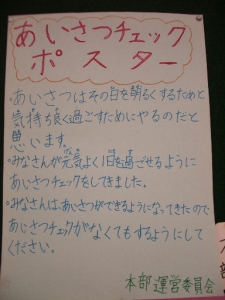 あいさつチェック
ポスター
・あいさつはその日を明るくするためと
気持ち良く過ごすためにやるのだと
思います。
・みなさんが元気よく1日を過ごせるように
あいさつチェックをしてきました。
・みなさんはあいさつができるようになってきたので
あいさつチェックがなくてもするようにして
ください。
本部運営委員会